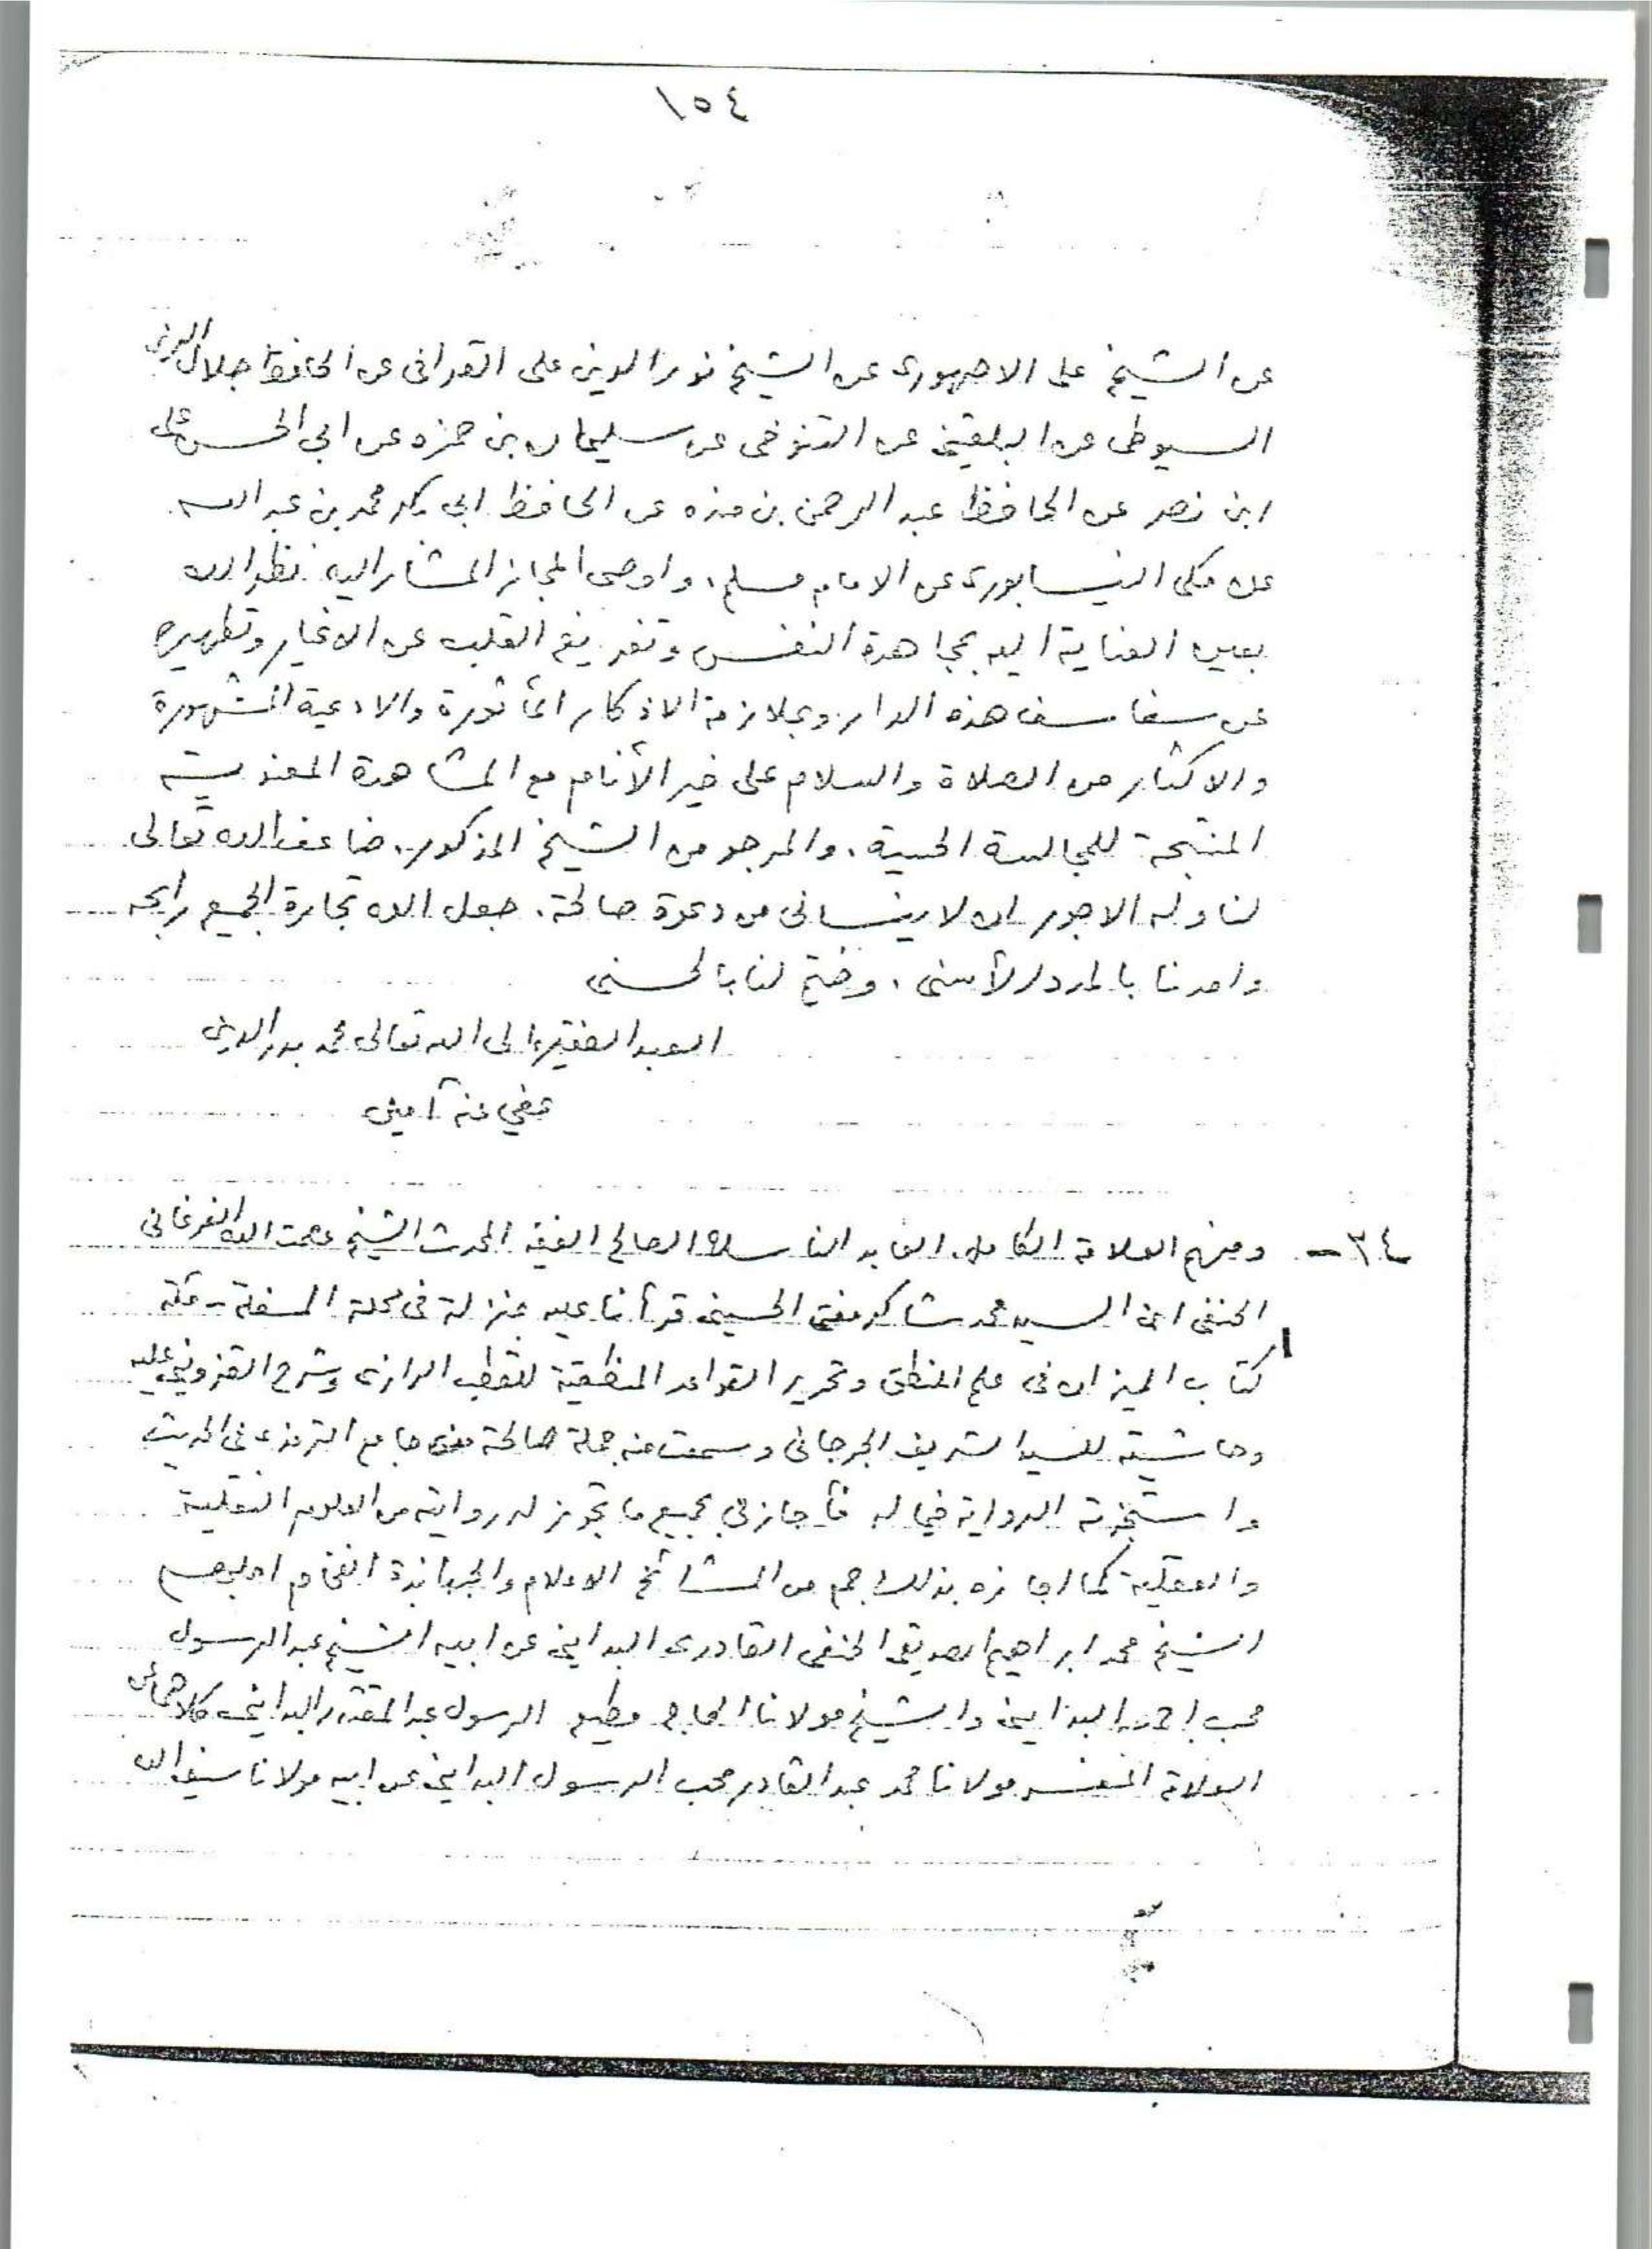 ١٥٤
عن الشيخ على الاجهورى عن الشيخ نور الدين على القرافى عن الحافظ جلال الدين
السيوطى عن البلقينى عن التنوخى عن سليمان بن حمزه عن ابى الحسن على
ابن نصر عن الحافظ عبد الرحمن بن منده عن الحافظ ابى بكر محمد بن عبد الله
عن مكى النيسابورى عن الامام مسلم، واوصى المجاز المشار اليه نظر الله
بعين العناية اليه بمجاهدة النفس وتفريغ القلب عن الاغيار وتطهيره
عن سفاسف هذه الدار وبملازمة الاذكار المأثورة والادعية المشهورة
والاكثار من الصلاة والسلام على خير الأنام مع المشاهدة المعنوية
المنتجة للمجالسة الحسية، والمرجو من الشيخ المذكور، ضاعف الله تعالى
لنا وله الاجور ان لا ينسانى من دعوة صالحة، جعل الله تجارة الجميع رابحه
وامدنا بالمدد الأسنى، وختم لنا بالحسنى
العبد الفقير الى الله تعالى محمد بدر الدين
عفي عنه آمين
٣٤ - ومنهم العلامة الكامل العابد الناسك الصالح الفقيه المحدث الشيخ عصمت الله الفرغانى
الحنفى السيد محمد شاكر مفتى الحسينى قرأنا عليه بمنزلة فى محلة المسفلة - بمكة
كتاب الميزان فى علم المنطق وتحرير القواعد المنطقية للقطب الرازى وشرح القزوينى عليه
وحاشيته للسيد الشريف الجرجانى وسمعت منه جملة صالحة من جامع الترمذى فى الحديث
واستجزته الرواية فيما له فأجازنى بجميع ما تجوز له روايته من العلوم النقلية
والعقلية كما اجازه بذلك جم من المشائخ الاعلام والجهابذة الفخام اجلهم
الشيخ محمد ابراهيم الصديقى الحنفى القادرى البداينى عن ابيه الشيخ عبد الرسول
محب احمد البداينى والشيخ مولانا الحاج مطيع الرسول عبد المقتدر البداينى كلاهما عن
العلامة المفسر مولانا محمد عبد القادر محب الرسول البداينى عن ابيه مولانا سيف الله